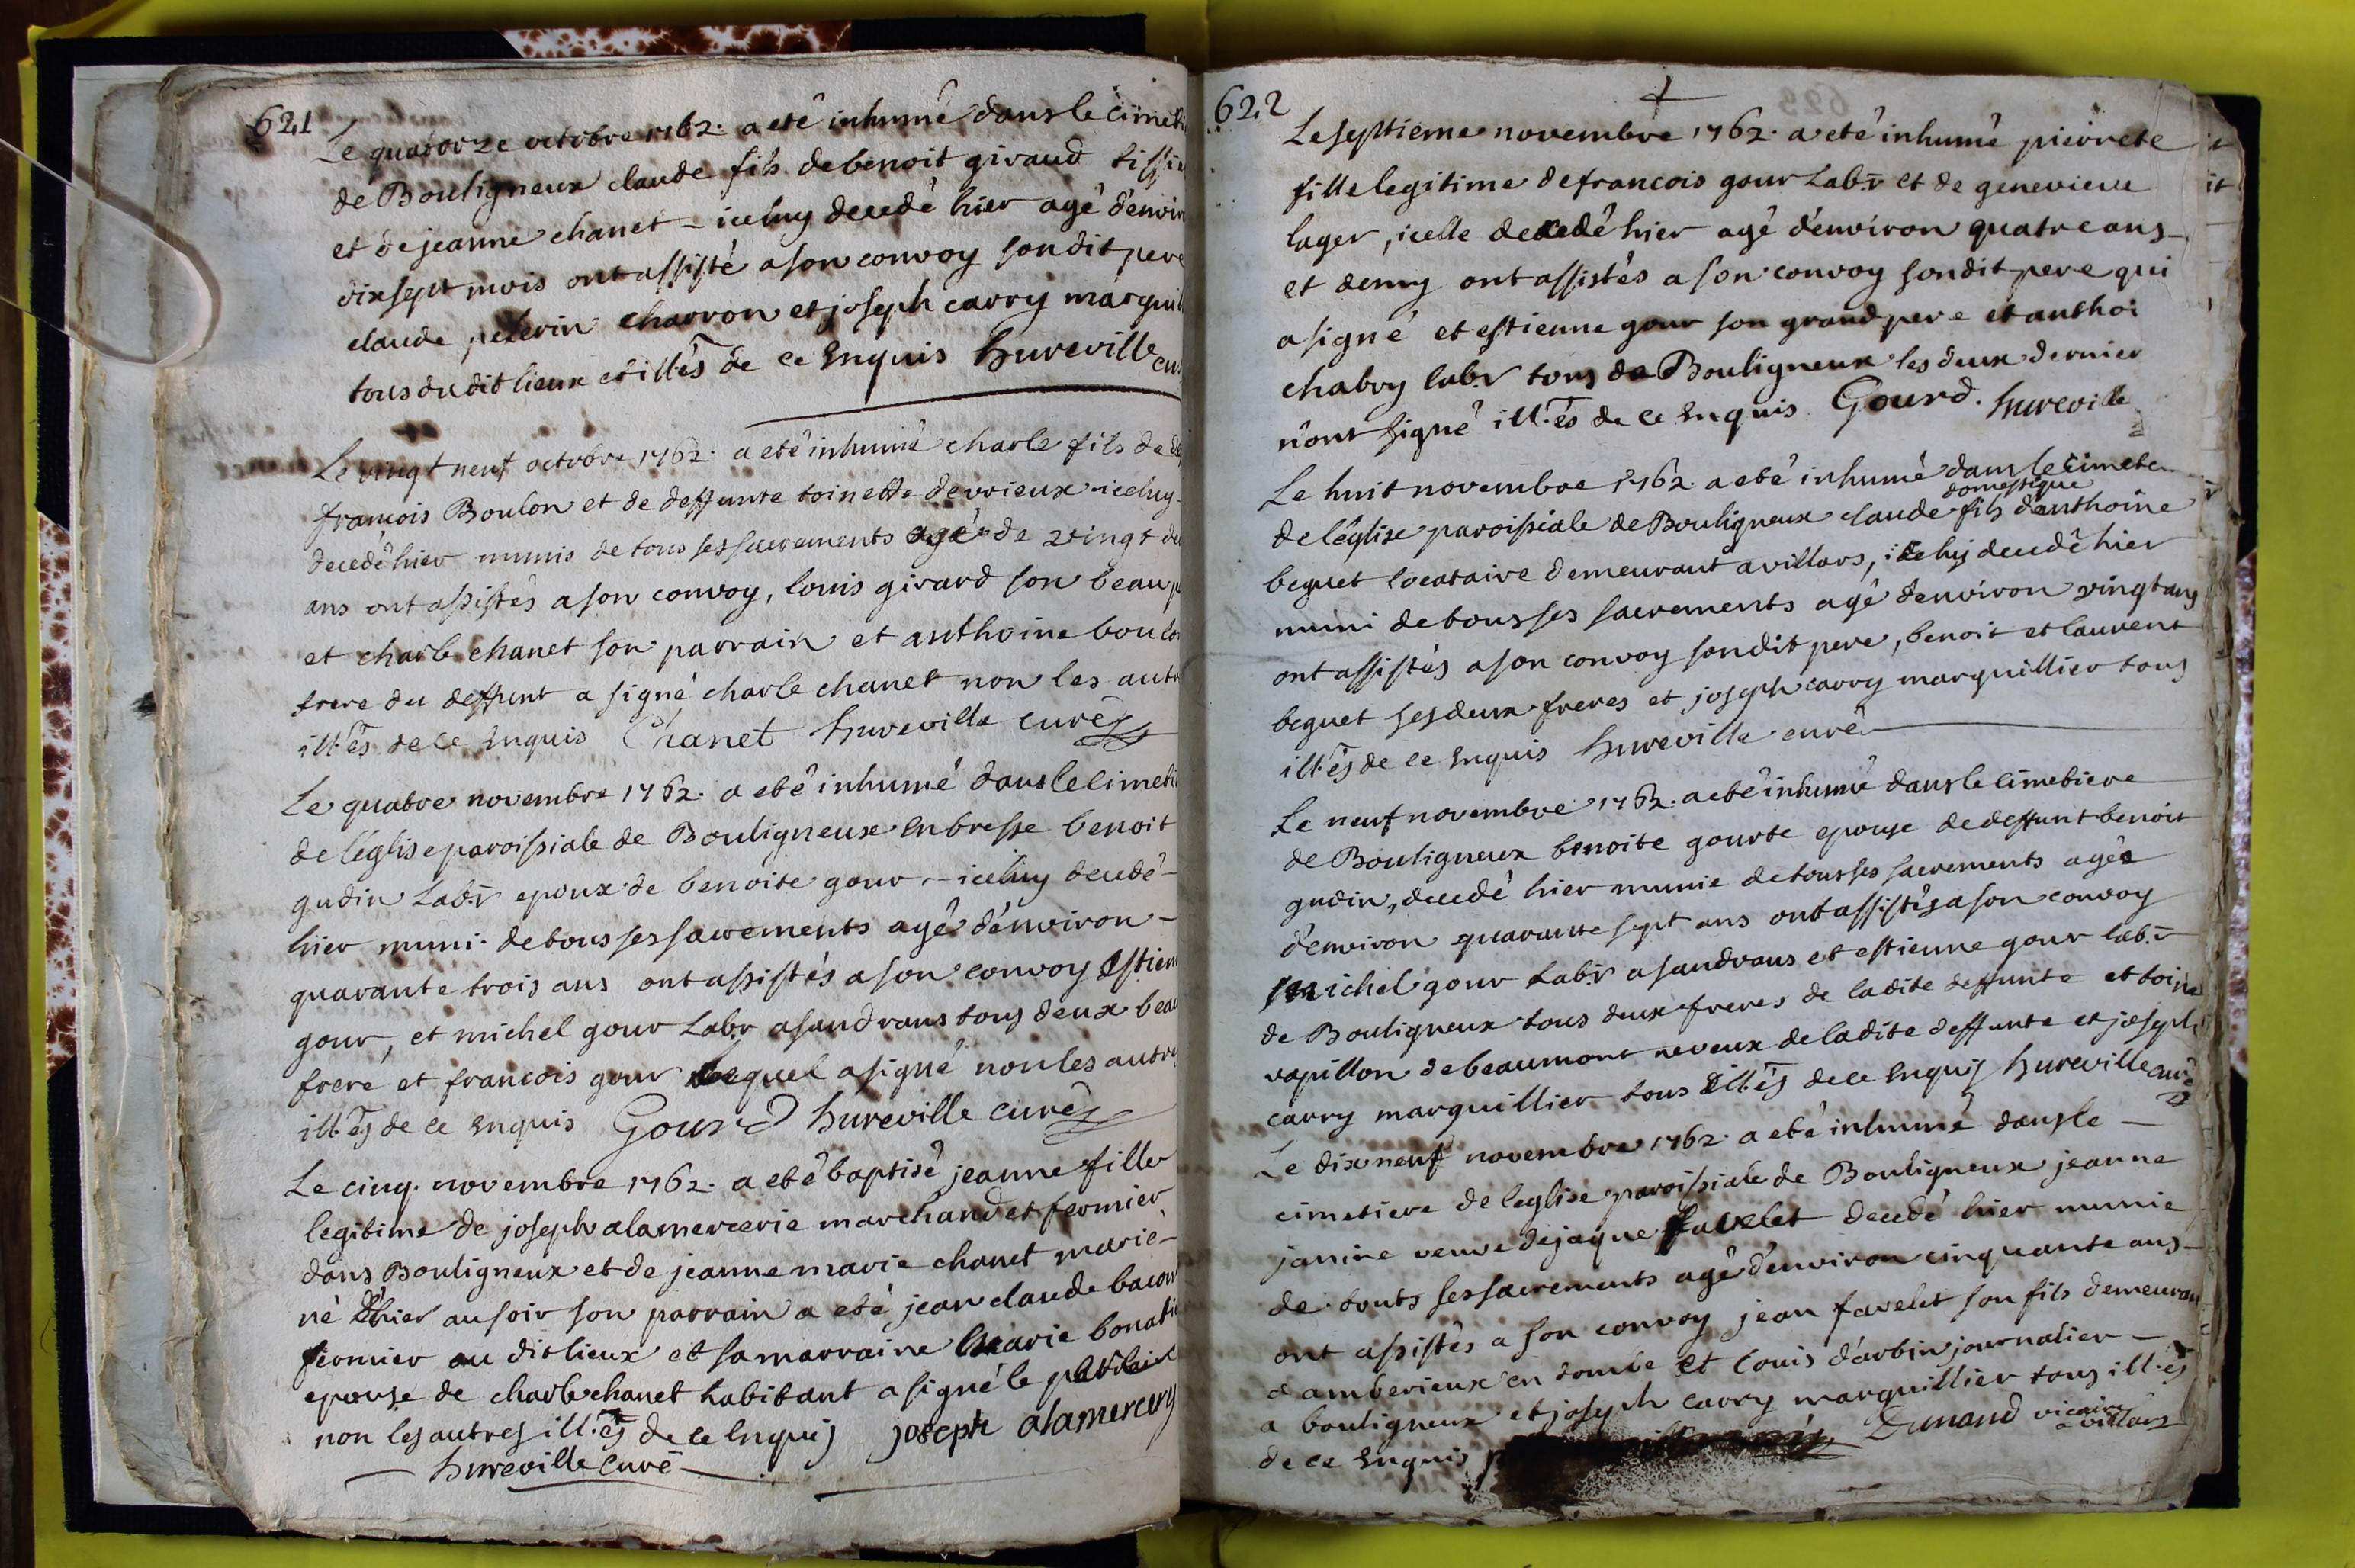 621
Le quatorze octobre 1762. a eté inhumé dans le cimeti
de Bouligneux claude fils de benoit giraud tissi
et de jeanne chanet - iceluy decedé hier agé d'envir
dixsept mois ont assisté a son convoy son dit pere
claude pelerin charron et joseph carry marguil
tous du dit lieux et ill.és de ce Enquis hureville cu
Le vingt neuf octobre 1762. a eté inhumé charle fils de
francois Boulon et de deffunte toinette devrieux iceluy
decedé hier munis de tous ses sacrements agé de vingt de
ans ont assistés a son convoy, louis girard son beau p
et charle chanet son parrain et anthoine boulo
frere du deffunt a signé charle chanet non les autr
ill.és de ce Enquis Chanet hureville curé
Le quatre novembre 1762. a eté inhumé dans le cimeti
de l'église paroissiale de Bouligneux en bresse benoit
gudin Lab.r epoux de benoite gour - iceluy decedé -
hier muni de tous ses sacrements agé d'environ -
quarante trois ans ont assistés a son convoy Estien
gour, et michel gour Labr a sandrans tous deux beau
frere et francois gour lequel a signé non les autre
ill.és de ce Enquis Gourd hureville curé
Le cinq. novembre 1762. a eté baptisé jeanne fille
legitime de joseph alamercerie marchand et fermier
dans Bouligneux et de jeanne marie chanet marié -
né d'hier au soir son parrain a eté jean claude bacon
fermier au dit lieux et sa marraine Marie bonati
epouse de charle chanet habitant a signé le parrain
non les autres ill.és de ce Enquis joseph alamercery
hureville curé
622
Le septieme novembre 1762. a eté inhumé pierrete
fille legitime de francois gour Lab.r et de genevieve
lager, icelle decedé hier agé d'environ quatre ans -
et demy ont assistés a son convoy son dit pere qui
a signé et estienne gour son grand pere et anthoi
chabry lab.r tous de Bouligneux les deux dernier
n'ont signé ill.és de ce Enquis Gourd. hureville
Le huit novembre 1762. a eté inhumé dans le cimetie
domestique
de l'église paroissiale de Bouligneux claude fils d'anthoine
beguet locataire demeurant a villars, iceluy decedé hier
muni de tous ses sacrements agé d'environ vingt ans
ont assistés a son convoy son dit pere, benoit et laurent
beguet ses deux freres et joseph carry marguillier tous
ill.és de ce Enquis hureville curé
Le neuf novembre 1762. a eté inhumé dans le cimetiere
de Bouligneux benoite gourte epouse de deffunt benoit
gudin, decedé hier munie de tous ses sacrements agée
d'environ quarante sept ans ont assistés a son convoy
Michel gour Lab.r a sandrans et estienne gour lab.r
de Bouligneux tous deux freres de ladite deffunte et toine
vapillon de beaumont neveux de ladite deffunte et joseph
carry marguillier tous ill.és de ce Enquis hureville curé
Le dix neuf novembre 1762. a eté inhumé dans le -
cimetiere de leglise paroissiale de Bouligneux jeanne
janine veuve de jaque favelet decedé hier munie
de touts ses sacrements agé d'environ cinquante ans -
ont assistés a son convoy jean favelet son fils demeuran
a amberieux en dombe et louis d'arbin journalier -
a bouligneux et joseph carry marguillier tous ill.és
de ce Enquis Dunand vicaire
a villars